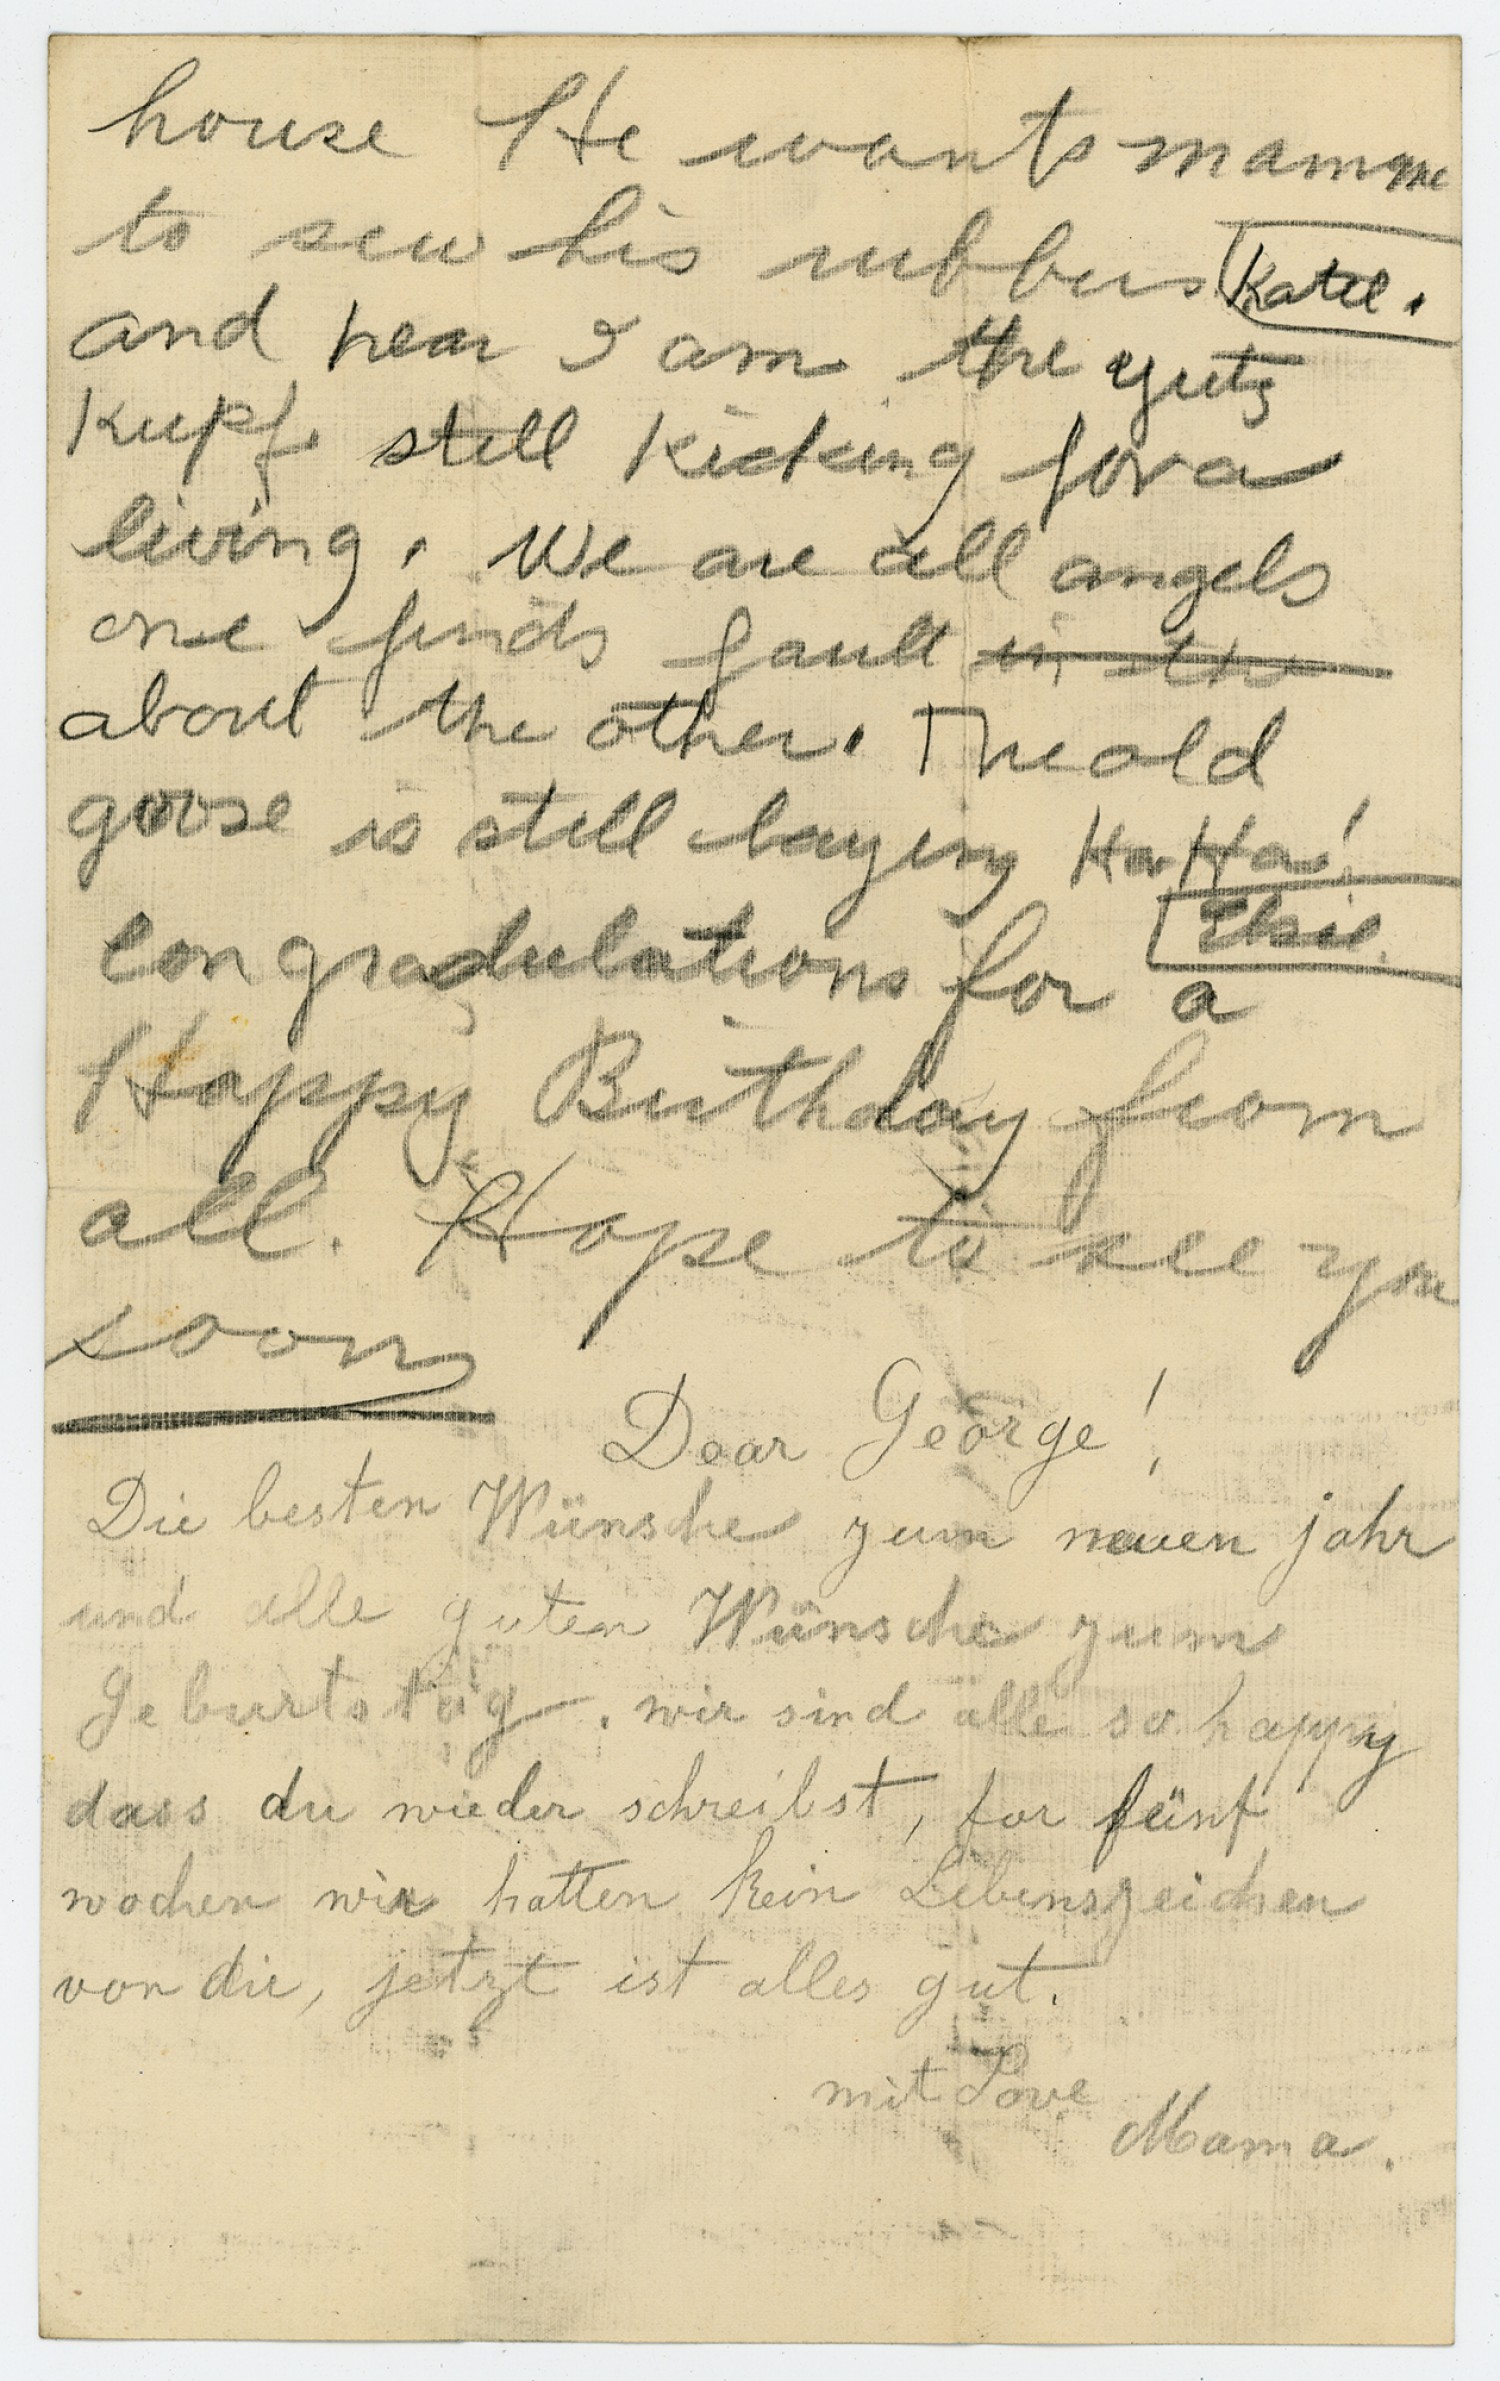 house He wants mamme
to sew his rubbers
Katie.
and hear I am the yutz
Kupf. still kicking for a
living. We are all angels
one finds fault in the
about the other. The old
goose is still laying Ha Ha!
Elsie.
Congradulations for a
Happy Birthday from
all. Hope to see you
soon
Dear George!
Die besten Wünsche zum neuen jahr
und alle guten Wünsche zum
Geburtstag. wir sind alle so happy
dass du wieder schreibst, for fünf
wochen wir hatten kein Lebenszeichen
von dir, jetzt ist alles gut.
mit Love
Mama.